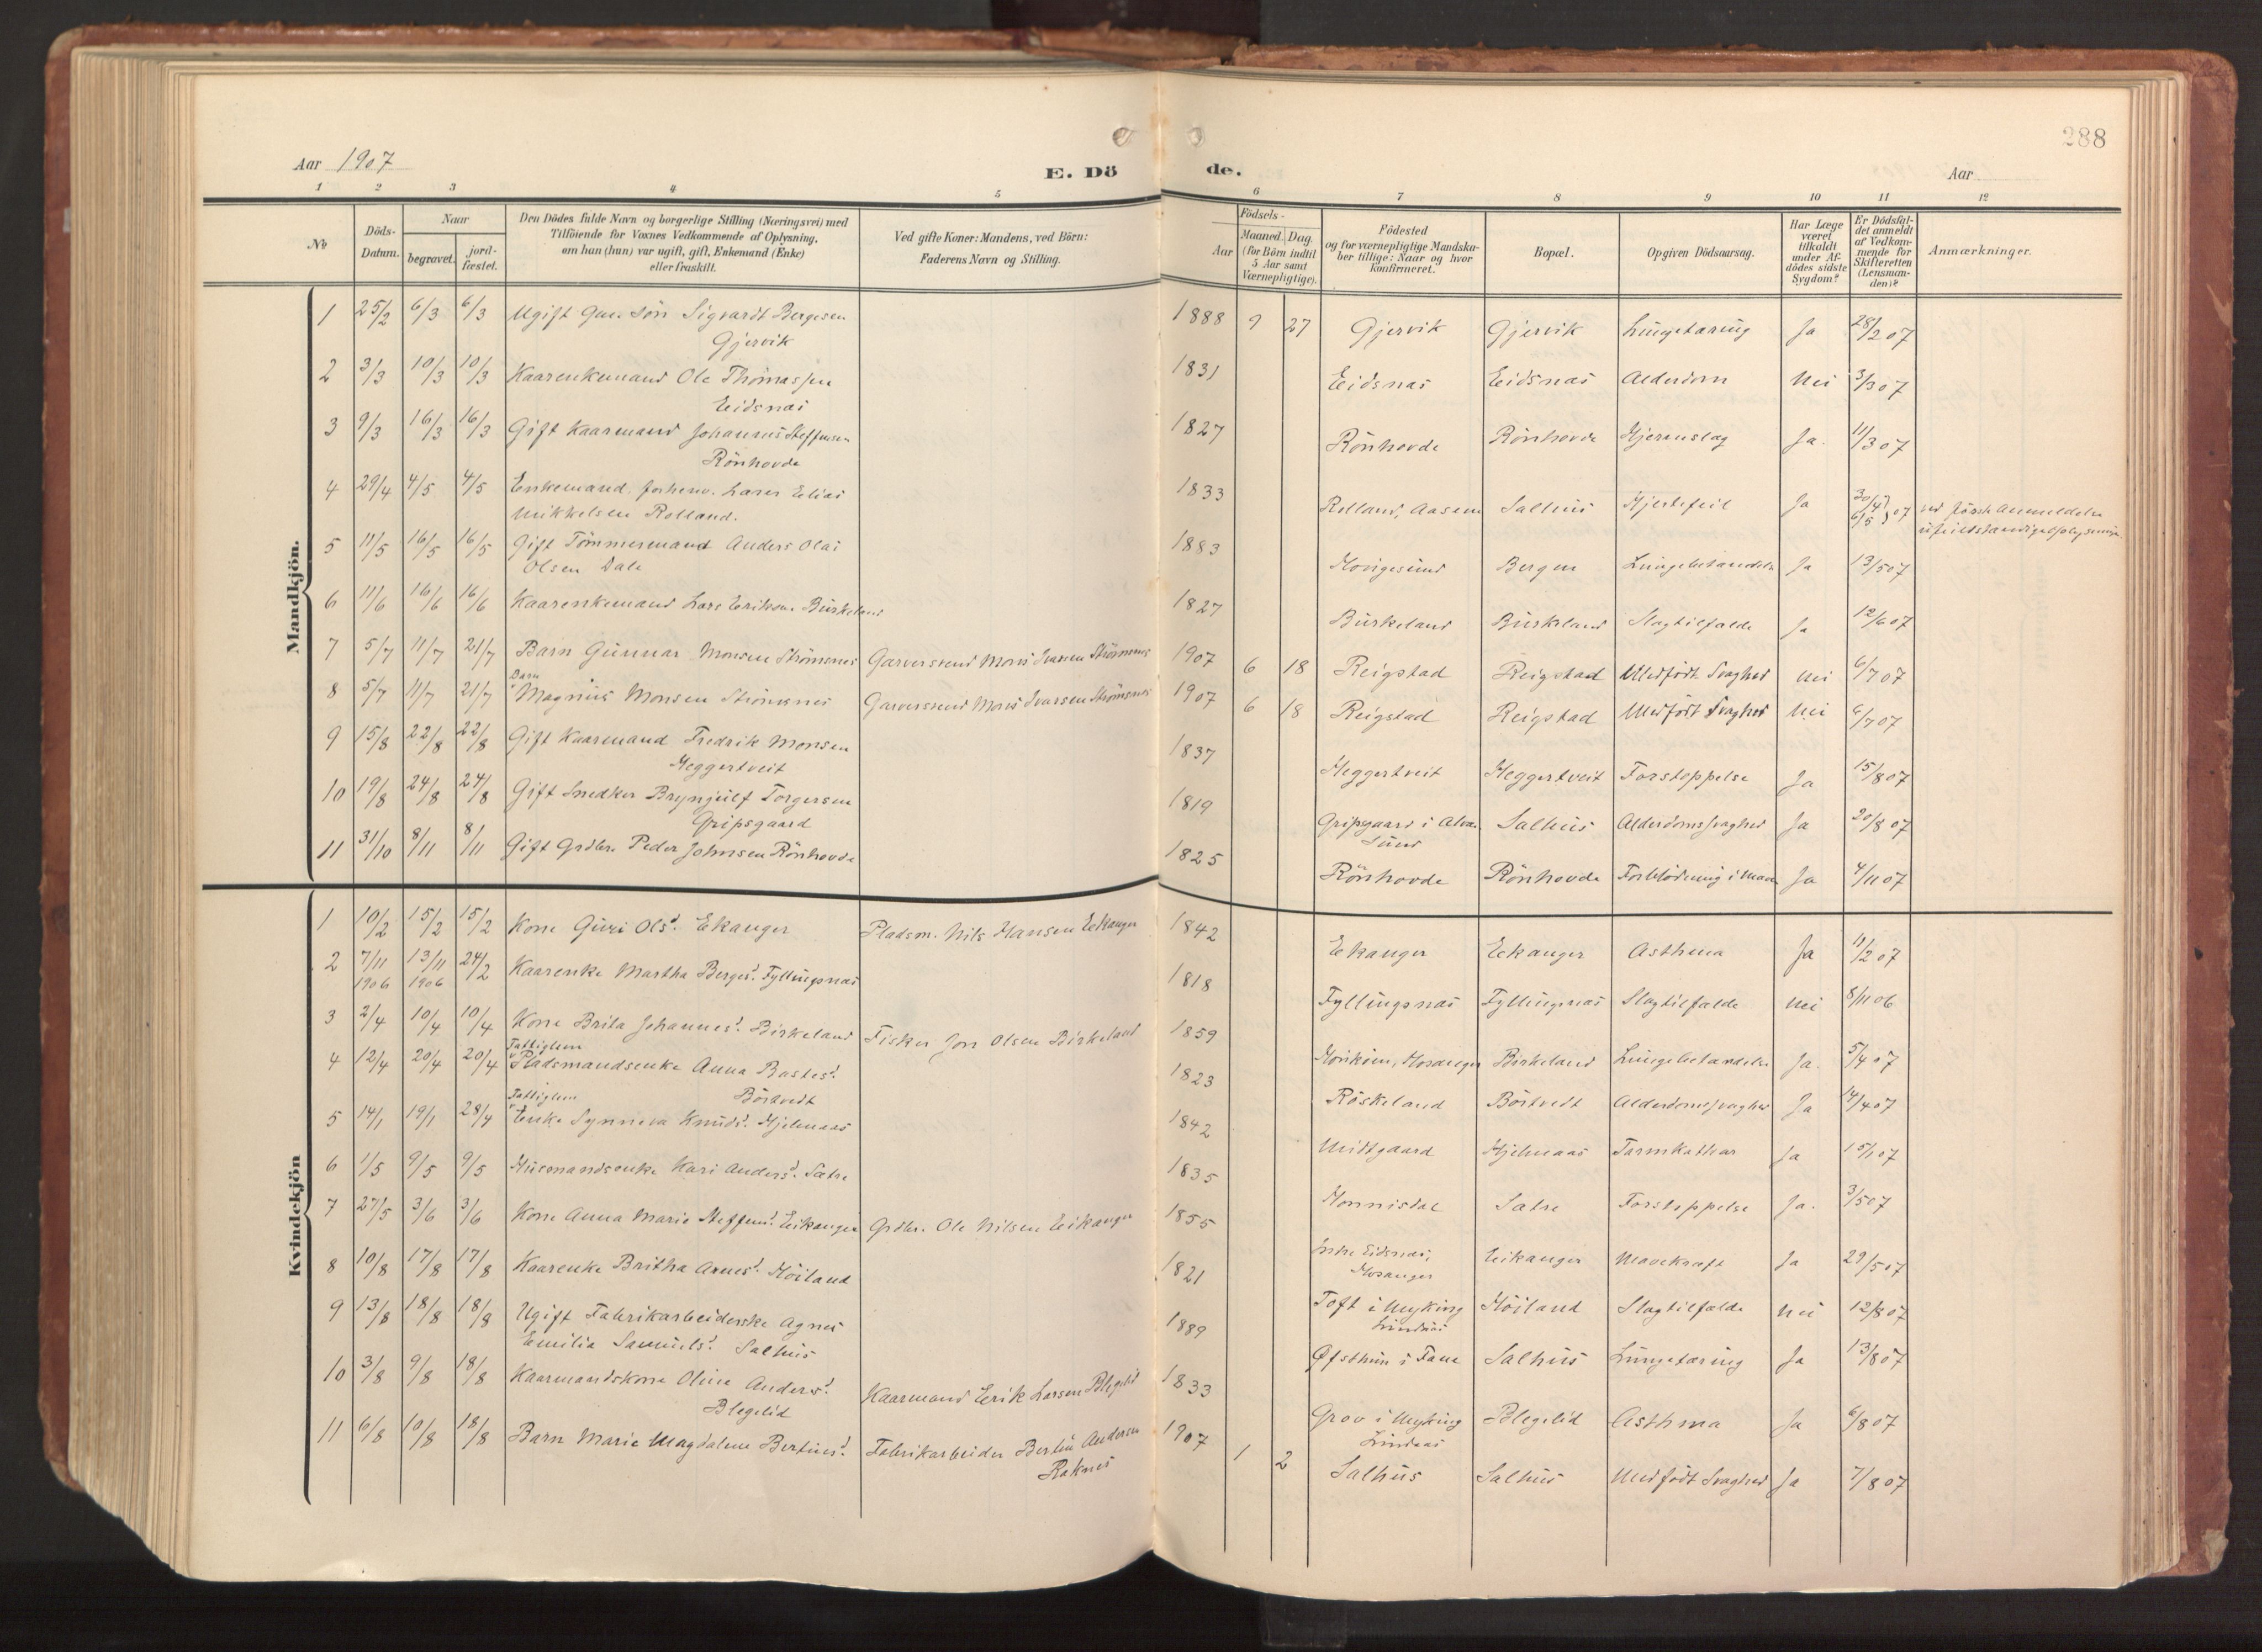 288
Aar 1907
E. Dö de.
Aar
1 2 3 4 5 6 7 8 9 10 11 12
No
Döds-Datum.
Naar
begravet.
jord-fæstet.
Den Dödes fulde Navn og borgerlige Stilling (Næringsvei) med
Tilföiende for Voxnes Vedkommende af Oplysning,
om han (hun) var ugift, gift, Enkemand (Enke)
eller fraskilt.
Ved gifte Koner: Mandens, ved Börn:
Faderens Navn og Stilling.
Födsels-
Aar
Maaned. Dag.
(for Börn indtil
5 Aar samt
Værnepligtige).
Födested
og for værnepligtige Mandska-
ber tillige: Naar og hvor
konfirmeret.
Bopæl.
Opgiven Dödsaarsag.
Har Læge
været
tilkaldt
under Af-
dödes sidste
Sygdom?
Er Dödsfal-
det anmeldt
af Vedkom-
mende for
Skifteretten
(Lensman-
den)?
Anmærkninger.
Mandkjön.
1 25/2 6/3 6/3 Ugift Gm. sön Sigvardt Bergesen 1888 9 27 Gjervik Gjervik Lungetæring Ja 28/2 07
Gjervik
2 3/3 10/3 10/3 Kaarenkemand Ole Thomassen 1831 Eidsnæs Eidsnæs Alderdom Nei 3/3 07
Eidsnæs
3 9/3 16/3 16/3 Gift Kaarmand Johannes Steffensen 1827 Rönhovde Rönhovde Hjerneslag Ja. 11/3 07
Rönhovde
4 29/4 4/5 4/5 Enkemand. forhenv. Lærer Elias 1833 Rolland, Aasene Salhus Hjertefeil Ja 30/4 6/5 07 ved første Anmeldelse
Mikkelsen Rolland.
5 11/5 16/5 16/5 Gift Tömmermand Anders Olai 1883 Bergen Lungebetændelse Ja 13/5 07
Olsen Dale
6 11/6 16/6 16/6 Kaarenkemand Lars Eriksen Burkeland 1827 Burkeland Burkeland Slagtilfælde Ja 12/6 07
7 5/7 11/7 21/7 Barn Gunnar Monsen Strömsnes Garversvend Mons Ivarsen Strömsnes 1907 6 18 Reigstad Reigstad Medfödt Svaghed Nei 6/7 07
8 5/7 11/7 21/7 Barn Magnus Monsen Strömsnes Garversvend Mons Ivarsen Strömsnes 1907 6 18 Reigstad Reigstad Medfödt Svaghed Nei 6/7 07
9 15/8 22/8 22/8 Gift Kaarmand Fredrik Monsen 1837 Heggertveit Heggertveit Forstoppelse Ja 15/8 07
Heggertveit
10 19/8 24/8 24/8 Gift Snedker Brynjulf Torgersen 1819 Gripsgaard i Alver Salhus Alderdomssvaghed Ja 20/8 07
Gripsgaard
Sund
11 31/10 8/11 8/11 Gift Grdbr. Peder Johnsen Rönhovde 1825 Rönhovde Rönhovde Forblödning i Ja 4/11 07
Kvindekjön
1 10/2 15/2 15/2 Kone Guri Olsd. Ekanger Pladsm. Nils Hansen Eekanger 1842 Eekanger Eekanger Asthma Ja 11/2 07
2 7/11 1906 13/11 1906 24/2 Kaarenke Martha Bergesd. Fyllingsnæs 1818 Fyllingsnæs Fyllingsnæs Slagtilfælde Nei 8/11 06
3 2/4 10/4 10/4 Kone Brita Johannesd. Birkeland Fisker Jon Olsen Birkeland 1859 Hosanger Birkeland Lungebetændelse Ja. 5/4 07
4 12/4 20/4 20/4 Fattiglem Pladsmandsenke Anna Bastesd. 1823 Röskeland Börtvedt Alderdomssvaghed Ja 14/4 07
Börtvedt
5 14/1 19/1 28/4 Fattiglem Enke Synneva Knudsd. Hjelmaas 1842 Midtgaard Hjelmaas Tarmkathar Ja 15/1 07
6 1/5 9/5 9/5 Husmandsenke Kari Andersd. Sætre 1835 Monnisdal Sætre Forstoppelse Ja. 3/5 07
7 27/5 3/6 3/6 Kone Anna Marie Steffensd. Eikanger Grdbr. Ole Nilsen Eikanger 1855 Indre Eidsnæs, Eikanger Mavekræft Ja 29/5 07
Hosanger
8 10/8 17/8 17/8 Kaarenke Britha Arnesd. Höiland 1821 Toft i Myking Höiland Slagtilfælde Nei 12/8 07
Lindaas
9 13/8 18/8 18/8 Ugift Fabrikarbeiderske Agnes 1889 Øfsthun i Fane Salhus Lungetæring Ja 13/8 07
Emilia Samuelsd. Salhus
10 3/8 9/8 18/8 Kaarmandskone Oline Andersd. Kaarmand Erik Larsen Blegelid 1833 Grov i Myking Blegelid Asthma Ja 6/8 07
Blegelid
Lindaas
11 6/8 10/8 18/8 Barn Marie Magdalene Bertinsd. Fabrikarbeider Bertin Andersen 1907 1 2 Salhus Salhus Medfödt Svaghed Ja 7/8 07
Raknes